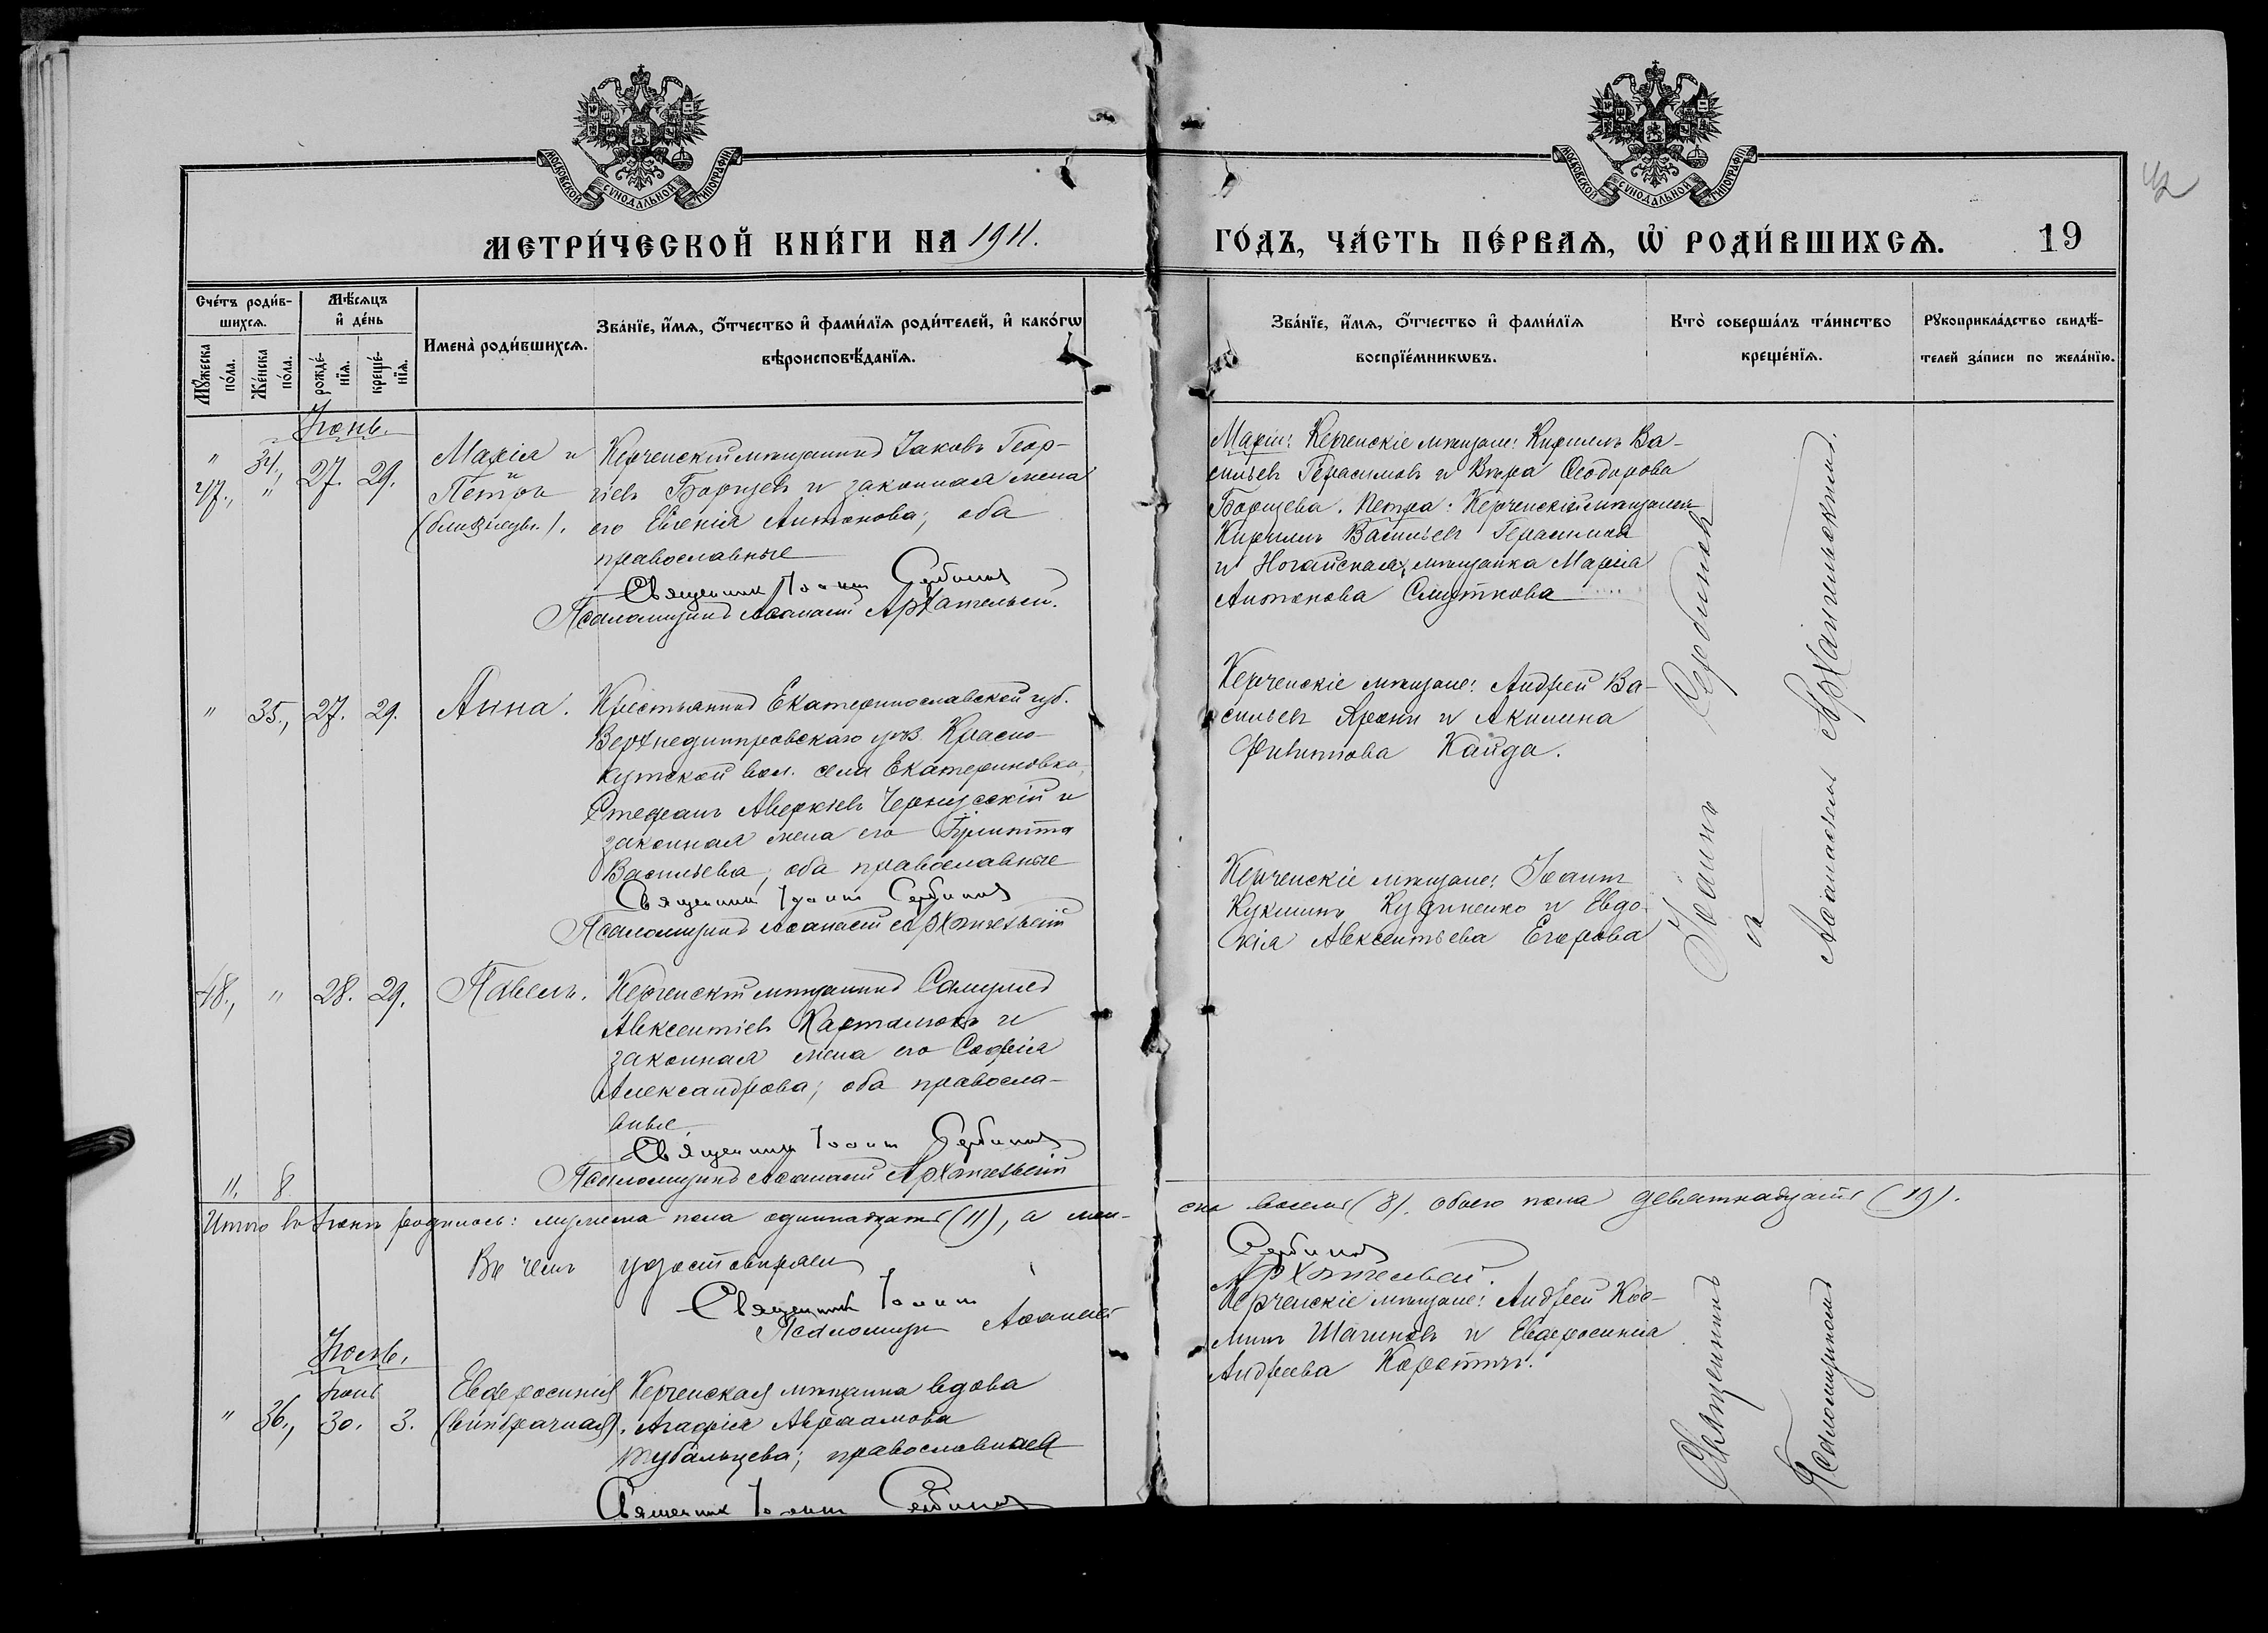 МОСКОВСКОЙ СѴНОДАЛЬНОЙ ТИПОГРАФІИ
МОСКОВСКОЙ СѴНОДАЛЬНОЙ ТИПОГРАФІИ
МЕТРИ́ЧЕСКОЙ КНИ́ГИ НА 1911.
ГО́ДЪ, ЧА́СТЬ ПЕ́РВАѦ, Ѽ РОДИ́ВШИХСѦ. 19
Сче́тъ роди́в-
шихсѧ.
Мѣ́сѧцъ
и҆ де́нь
Мꙋ́жеска
по́ла.
Же́нска
по́ла.
рожде́-
нїѧ.
креще́-
нїѧ.
Имена̀ роди́вшихсѧ.
Зва́нїе, и҆́мѧ, ѻ҆́тчество и҆ фами́лїѧ роди́телей, и҆ како́гѡ
вѣроисповѣ́данїѧ.
Зва́нїе, и҆́мѧ, ѻ҆́тчество и҆ фами́лїѧ
воспрїе́мникѡвъ.
Кто̀ соверша́лъ та́инство
креще́нїѧ.
Рꙋкоприкла́дство свидѣ́-
телей за́писи по жела́нїю.
Іюнь.
" 34., 27. 29.
47., "
Марія и
Петръ
(близнецы).
Керченскій мѣщанинъ Іаковъ Геор-
гіевъ Борщевъ и законная жена
его Евгенія Антонова; оба
православные
Священникъ Іоаннъ Сербиновъ
Псаломщикъ Аѳанасій Архангельскій.
Маріи: Керченскіе мѣщане: Кириллъ Ва-
сильевъ Герасимовъ и Вѣра Ѳеодорова
Борщева. Петра: Керченскій мѣщанинъ
Кириллъ Васильевъ Герасимовъ
и Ногайская мѣщанка Марія
Антонова Смуткова
" 35., 27. 29.
Анна.
Крестьянинъ Екатеринославской губ.
Верхнеднѣпровскаго уѣз. Красно-
кутской вол. села Екатериновки,
Стефанъ Аверкіевъ и
законная жена его Іулитта
Васильева, оба православные
Священникъ Іоаннъ Сербиновъ
Псаломщикъ Аѳанасій Архангельскій
Керченскіе мѣщане: Андрей Ва-
сильевъ и Акилина
Филиппова Кайда.
48., " 28. 29.
Павелъ.
Керченскій мѣщанинъ Самуилъ
Авксентіевъ Картамовъ и
законная жена его Софія
Александрова; оба правосла-
вные
Священникъ Іоаннъ Сербиновъ
Псаломщикъ Аѳанасій Архангельскій
Керченскіе мѣщане: Іоаннъ
и Евдо-
кія Авксентьева Егорова
Священникъ Іоаннъ Сербиновъ
и
Псаломщикъ Аѳанасій Архангельскій.
11. 8
Итого въ Іюнѣ родилось: мужеска пола одиннадцать (11), а жен-
ска восемь (8). Обоего пола девятнадцать (19).
Въ чемъ удостовѣряемъ
Священникъ Іоаннъ Сербиновъ
Псаломщикъ Аѳанасій Архангельскій.
Іюль.
Іюнь
" 36., 30. 3.
Евфросинія
(внѣбрачная).
Керченская мѣщанка вдова
Агафія Авраамова
Тубальцева; православная
Священникъ Іоаннъ Сербиновъ
Керченскіе мѣщане: Андрей Кос-
минъ Шагиновъ и Евфросинія
Андреева